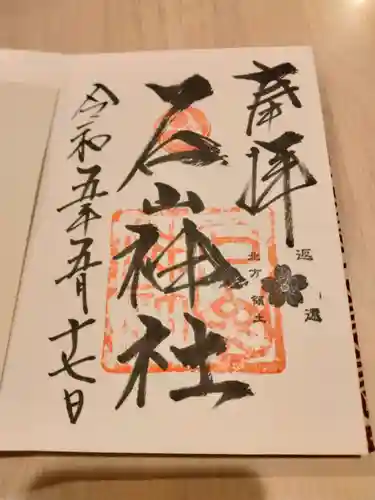 奉拝
北方領土
返還
石山神社
令和五年五月十七日